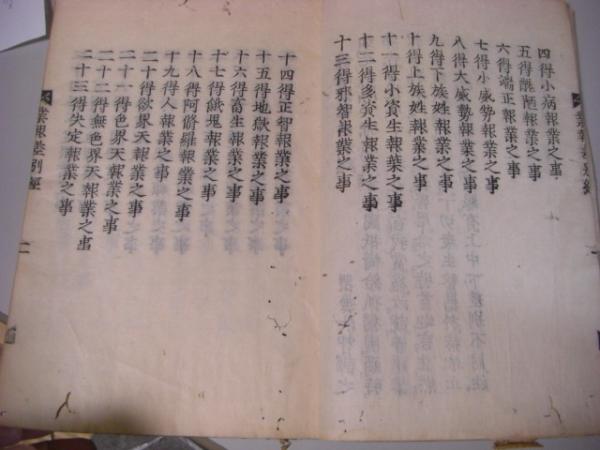 四得小病報業之事
五得醜陋報業之事
六得端正報業之事
七得小威勢報業之事
八得大威勢報業之事
九得下族姓報業之事
十得上族姓報業之事
十一得小資生報業之事
十二得多資生報業之事
十三得邪智報業之事
十四得正智報業之事
十五得地獄報業之事
十六得畜生報業之事
十七得餓鬼報業之事
十八得阿脩羅報業之事
十九得人報業之事
二十得欲界天報業之事
二十一得色界天報業之事
二十二得無色界天報業之事
二十三得決定報業之事
業報差別經
二